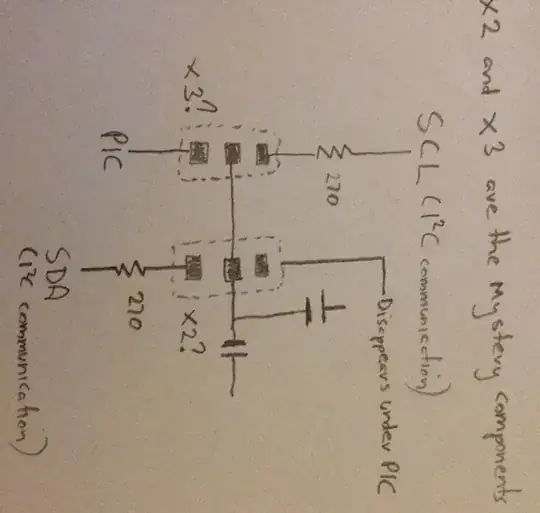 x2 and x3 are the Mystery components
SCL (I²C communication)
220
x3?
PIC
Disappears under PIC
x2?
220
SDA
(I²C communication)